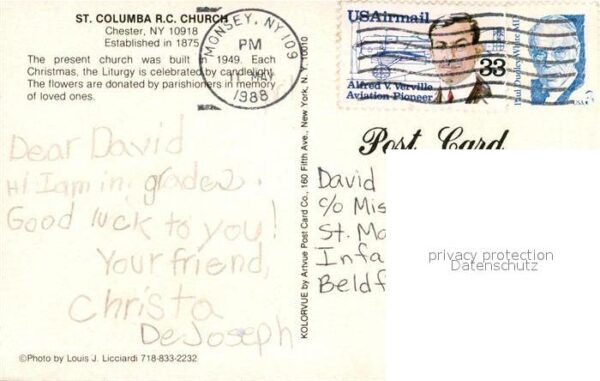 ST. COLUMBA R.C. CHURCH
Chester, NY 10918
Established in 1875
The present church was built in 1949. Each
Christmas, the Liturgy is celebrated by candlelight.
The flowers are donated by parishioners in memory
of loved ones.
MONSEY, NY 109
PM
11 MAY
1988
USAirmail
33
Alfred V. Verville
Aviation Pioneer
Paul Dudley White MD
USA 3
Post Card
Dear David
Hi I am in grade 2.
Good luck to you!
Your friend,
Christa
DeJoseph
David
c/o Mis
St. Mo
Infa
Beldf
privacy protection
Datenschutz
KOLORVUE by Artvue Post Card Co., 160 Fifth Ave., New York, N.Y. 10010
©Photo by Louis J. Licciardi 718-833-2232